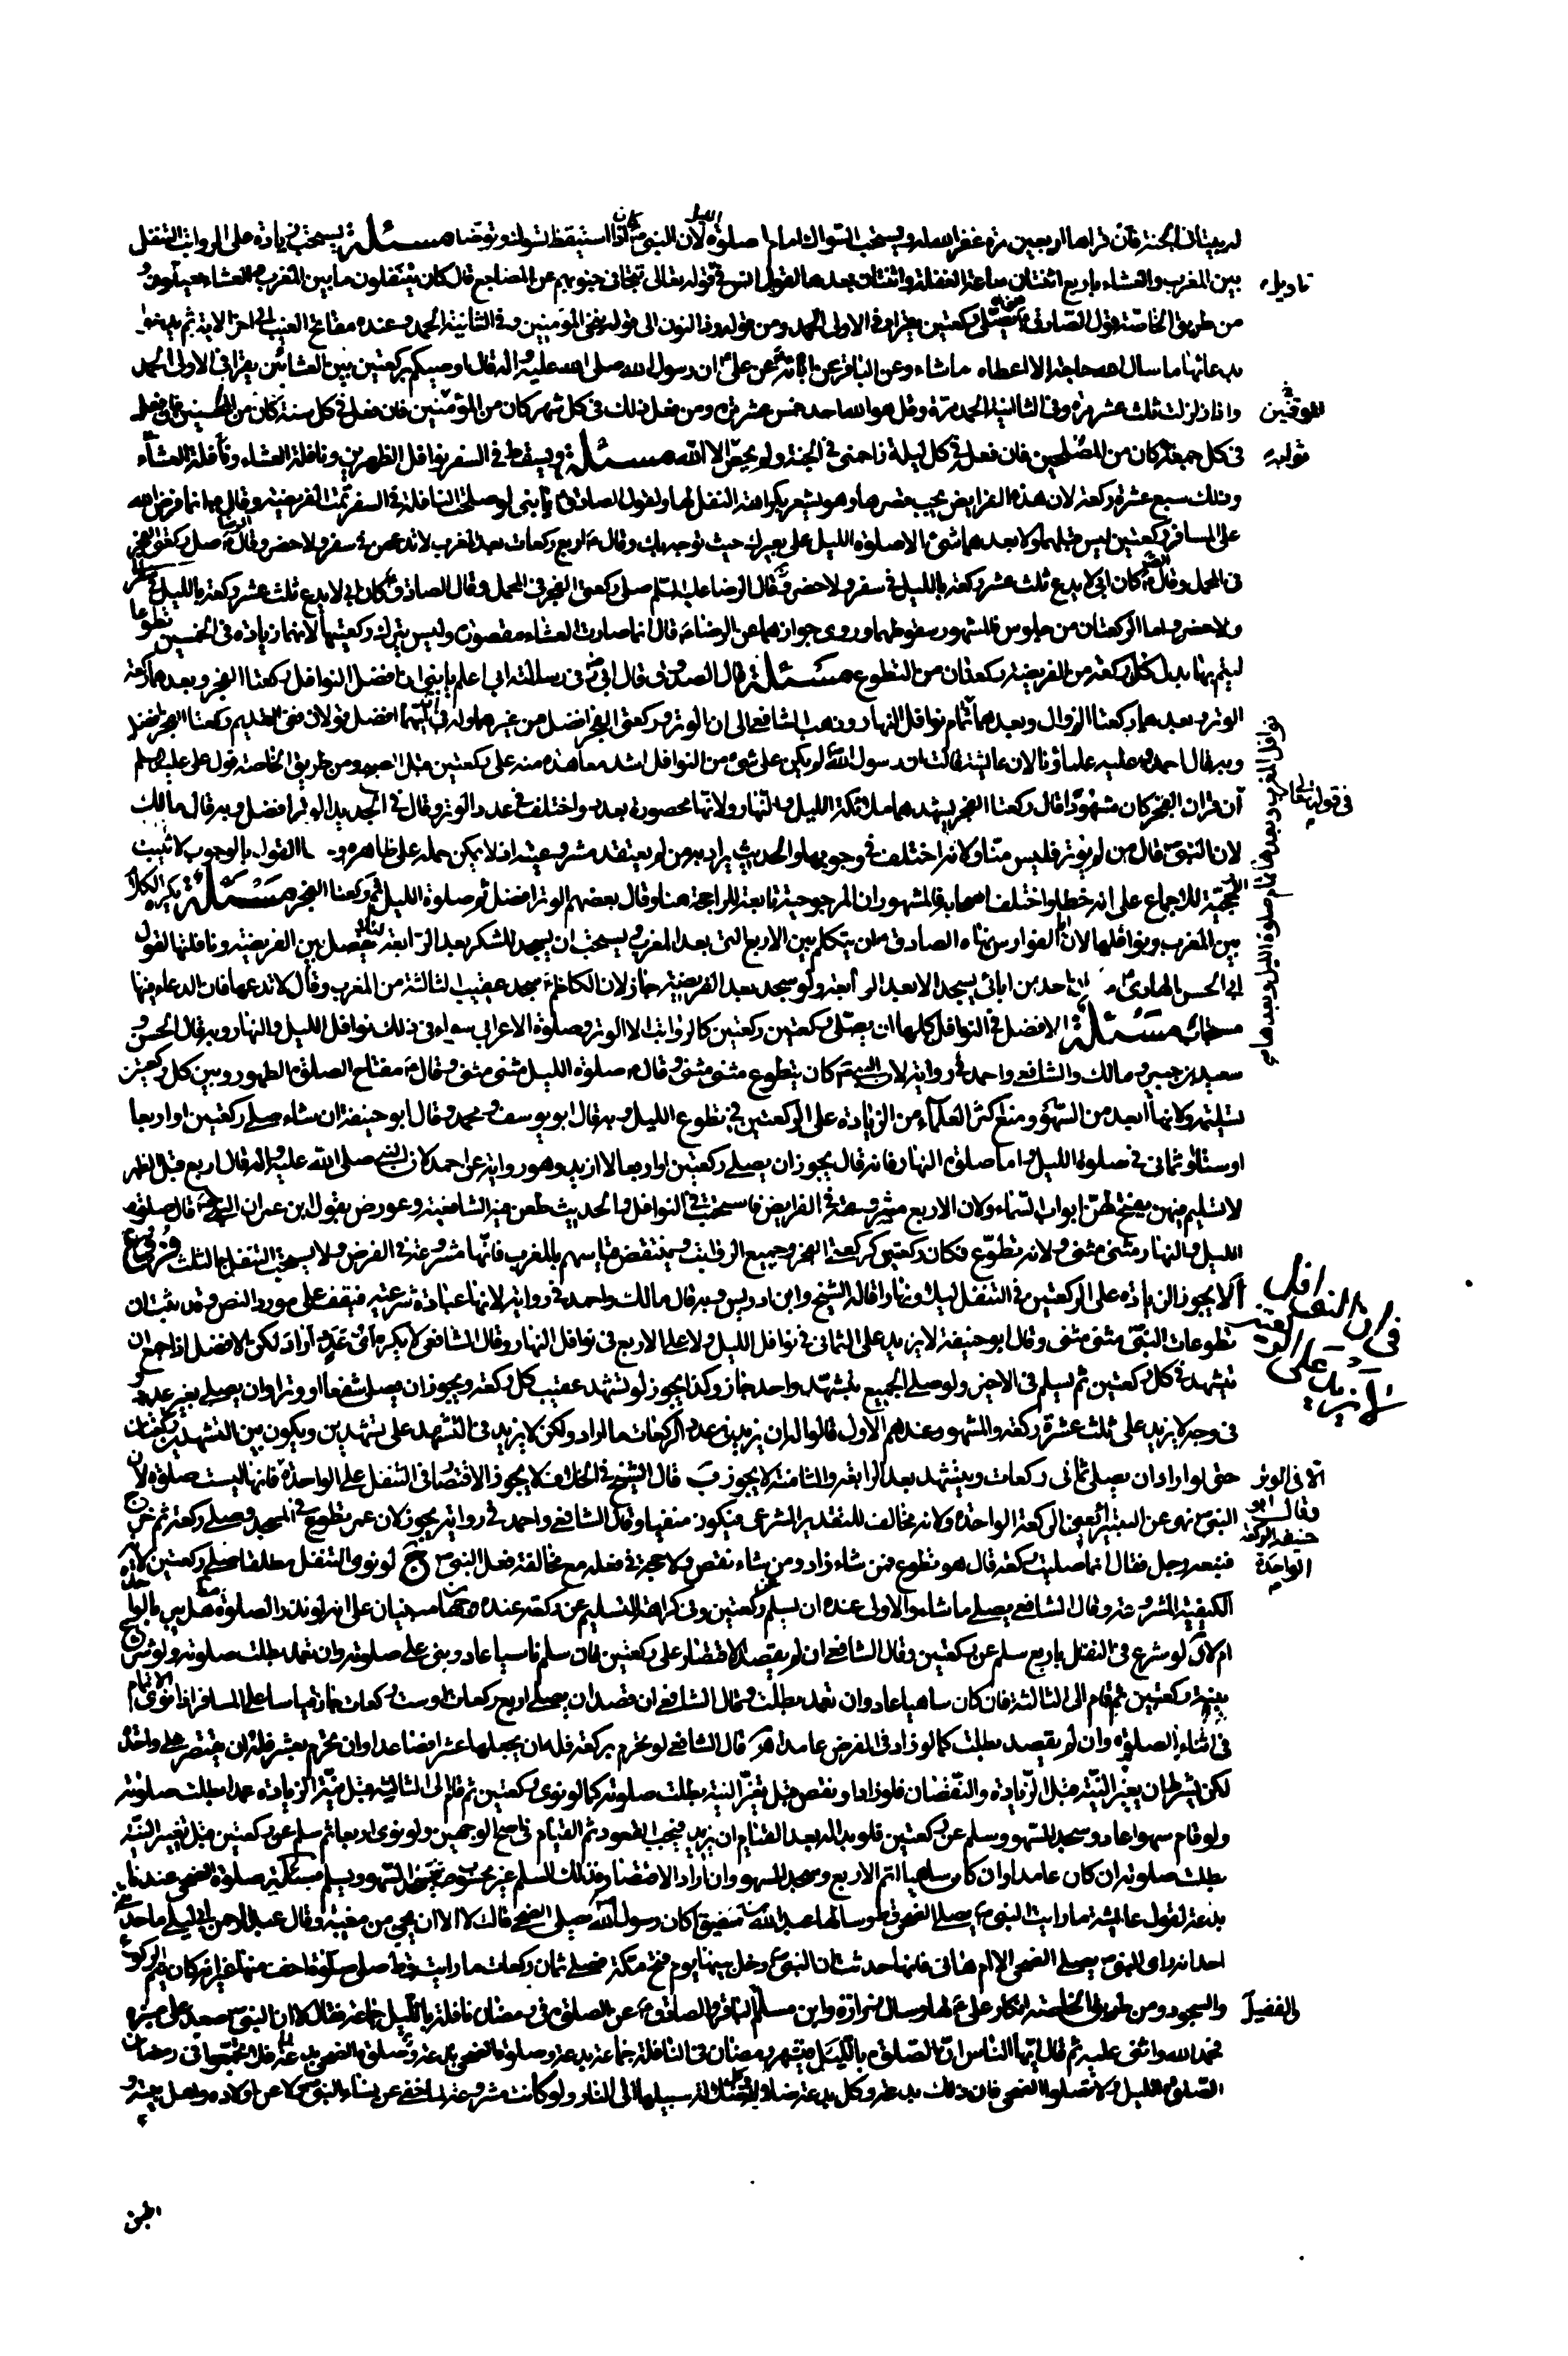 له بيتا في الجنة فان قراها اربعين مرة غفر الله له ويستحب السواك امام صلوة الليل لان النبي ص كان اذا استيقظ تسوك وتوضا مسئلة يستحب زيادة على الرواتب التنفل
بين المغرب والعشاء باربع اثنتان ساعة الغفلة واثنتان بعدها لقول انس في قوله تعالى تتجافى جنوبهم عن المضاجع قال كان يتنفلون ما بين المغرب والعشاء
تاديله
من طريق الخاصة قول الصادق ع من صلى ركعتين يقرا في الاولى الحمد ومن قوله وذا النون الى قوله ننجي المؤمنين وفي الثانية الحمد وعنده مفاتح الغيب الى اخر الاية ثم يدعوا
بدعائها ما سال الله حاجة الا اعطاه ما شاء وعن الباقر عن ابائه عن علي ان رسول الله صلى الله عليه واله قال اوصيكم بركعتين بين العشائين يقرا في الاولى الحمد
واذا زلزلت ثلث عشر مرة وفي الثانية الحمد مرة وقل هو الله احد خمس عشر مرة ومن فعل ذلك في كل شهر كان من المؤمنين فان فعل في كل سنة كان من المحسنين فان فعل
الموقنين
في كل جمعة كان من المصلحين فان فعل في كل ليلة زاحمني في الجنة ولم يحص الا الله مسئلة ويسقط في السفر نوافل الظهرين ونافلة العشاء
ثوابه
وذلك سبع عشرة ركعة لان هذه الفرايض يجب قصرها وهو يشعر بكراهة التنفل لها ولقول الصادق ع يا بني لو صلحت النافلة في السفر تمت الفريضة وقال ع انما فرض الله
على المسافر ركعتين ليس قبلهما ولا بعدهما شئ الا صلوة الليل على بعيرك حيث توجه بك وقال ع اربع ركعات بعد المغرب لا تدعهن في سفر ولا حضر وقال الرضا ع صل ركعتي الفجر
في المحمل وقال الصادق ع كان ابي لا يدع ثلث عشر ركعة بالليل في سفر ولا حضر وقال الرضا عليه السلم صل ركعتي الفجر في المحمل وقال الصادق ع كان ابي لا يدع ثلث عشر ركعة بالليل في سفر
ولا حضر واما الركعتان من جلوس فالمشهور سقوطهما وروى جوازهما عن الرضا ع قال انما صارت العشاء مقصورة وليس يترك ركعتيها لانها زيادة في الخمسين تطوعا
ليتم بها بدل كل ركعة من الفريضة ركعتان من التطوع مسئلة قال الصدوق قال ابي في رسالته الى اعلم يا بني ان افضل النوافل ركعتا الفجر وبعدهما ركعة
الوتر وبعدها ركعتا الزوال وبعدهما تمام نوافل النهار وذهب الشافعي الى ان الوتر وركعتي الفجر افضل من غيرهما وله في ايهما افضل قولان ففي القديم ركعتا الفجر افضل
وبه قال احمد وعليه علماؤنا لان عايشة قالت ان رسول الله ص لم يكن على شئ من النوافل اشد معاهدة منه على ركعتين قبل الصبح ومن طريق الخاصة قول علي عليه السلم
في قوله تعالى
ان قران الفجر كان مشهودا قال ركعتا الفجر يشهدهما ملائكة الليل والنهار ولانها محصورة بعدد واختلف في عدد الوتر وقال في الجديد الوتر افضل وبه قال مالك
لان النبي ص قال من لم يوتر فليس منا ولانه اختلف في وجوبها والحديث يراد به من لم يعتقد مشروعيته اذ لا يمكن حمله على ظاهره و القول بالوجوب لا تثبت
الحجية للاجماع على انه خطا واختلف اصحابه فالمشهور ان المرجوحية تابعة للراجحة هنا وقال بعضهم الوتر افضل ثم صلوة الليل ثم ركعتا الفجر مسئلة يكره الكلام
بين المغرب ونوافلها لان ابا الفوارس نهاه الصادق ع ان يتكلم بين الاربع التي بعد المغرب ويستحب ان يسجد للشكر بعد الرابعة لئلا يفصل بين الفريضة ونافلتها لقول
ابي الحسن الهادي ع ان احد من ابائي يسجد الا بعد الرابعة ولو سجد بعد الفريضة جاز لان الكاظم ع سجد عقيب الثالثة من المغرب وقال لا تدعها فان الدعاء فيها
مستجاب مسئلة الافضل في النوافل كلها ان يصلي ركعتين ركعتين كالرواتب الا الوتر وصلوة الاعرابي سواء في ذلك نوافل الليل والنهار وبه قال الحسن و
سعيد بن جبير ومالك والشافعي واحمد في رواية لان النبي ص كان يتطوع مثنى مثنى وقال ص صلوة الليل مثنى مثنى وقال ص مفتاح الصلوة الطهور وبين كل ركعتين
تسليمة ولانها ابعد من السهو ومنع اكثر العلماء من الزيادة على الركعتين في تطوع الليل وبه قال ابو يوسف ومحمد وقال ابو حنيفة ان شاء صلى ركعتين او اربعا
او ستا او ثماني في صلوة الليل واما صلوة النهار فانه قال يجوز ان يصلي ركعتين او اربعا لا ازيد وهو رواية عن احمد لان النبي صلى الله عليه واله قال اربع قبل الظهر
لا تسليم فيهن يفتح لهن ابواب السماء ولان الاربع مشروعة في الفرايض فاستحبت في النوافل والحديث طعن فيه الشافعية وعورض بقول ابن عمر ان النبي ص قال صلوة
الليل والنهار مثنى مثنى ولانه تطوع فكان ركعتين كركعتي الفجر وجميع الرواتب وينتقض قياسهم بالمغرب فانها مشروعة في الفرض ولا يستحب التنفل بالثلث فروع
ا لا يجوز الزيادة على الركعتين في التنفل ليلا ونهارا قاله الشيخ وابن ادريس وبه قال مالك واحمد في رواية لانها عبادة شرعية فيقف على مورد النص وقد ثبت ان
في ان النوافل لا يزيد على الركعتين
تطوعات النبي ص مثنى مثنى وقال ابو حنيفة لا يزيد على الثماني في نوافل الليل ولا على الاربع في نوافل النهار وقال الشافعي لا يكره اي عدد اراد لكن الافضل اذا جمع ان
يتشهد في كل ركعتين ثم يسلم في الاخير ولو صلى الجميع بتشهد واحد جاز وكذا يجوز لو تشهد عقيب كل ركعة ويجوز ان يصلي شفعا او وترا وان يصلي بغير عدد و
في وجه لا يزيد على ثلث عشرة ركعة والمشهور عندهم الاول قالوا له ان يزيد في عدد الركعات ما اراد ولكن لا يزيد في التشهد على تشهدين ويكون بين التشهدين ركعتان
حتى لو اراد ان يصلي ثماني ركعات ويتشهد بعد الرابعة والثامنة لا يجوز ب قال الشيخ في الخلاف لا يجوز الاقتصار في التنفل على الواحدة فانها ليست صلوة لان
الا في الوتر
النبي ص نهى عن البتيراء يعني الركعة الواحدة ولانه مخالف للتقدير الشرعي فيكون منفيا وقال الشافعي واحمد في رواية يجوز لان عمر تطوع في المسجد فصلى ركعة ثم خرج
وقال ابو حنيفة الركعة الواحدة
فتبعه رجل فقال انما صليت ركعة قال هو تطوع فمن شاء زاد ومن شاء نقص ولا حجة في فعله مع مخالفة فعل النبي ص ج لو نوى التنفل مطلقا صلى ركعتين لانه
الكيفية المشروعة وقال الشافعي يصلي ما شاء والاولى عنده ان يسلم عن ركعتين وفي كراهة التسليم عن ركعة عنده وجهان مبنيان على انه لو نذر الصلوة هل يبر بالواحدة
ام لا د لو شرع في التنفل باربع سلم عن ركعتين وقال الشافعي ان لم يقصد الاقتصار على ركعتين فان سلم ناسيا عاد وبنى على صلوته وان تعمد بطلت صلوته ه ولو شرع
بنية ركعتين ثم قام الى الثالثة فان كان ساهيا عاد وان تعمد بطلت وقال الشافعي ان قصد ان يصلي اربع ركعات او ست ركعات جاز قياسا على المسافر اذا نوى الاتمام
في اثناء الصلوة وان لم يقصد بطلت كما لو زاد في الفرض عامدا و قال الشافعي لو تحرم بركعة فله ان يجعلها عشرا فصاعدا وان تحرم بعشر فله ان يقتصر على واحدة
لكن يشترط ان يغير النية قبل الزيادة والنقصان فلو زاد او نقص قبل تغير النية بطلت صلوته كما لو نوى ركعتين ثم قام الى الثالثة قبل نية الزيادة عمدا بطلت صلوته
ولو قام سهوا عاد وسجد للسهو وسلم عن ركعتين فلو بدا له بعد القيام ان يزيد فيجب القعود ثم القيام في اصح الوجهين ولو نوى اربعا ثم سلم عن ركعتين قبل تغيير النية
بطلت صلوته ان كان عامدا وان كان ساهيا اتم الاربع وسجد للسهو وان اراد الاقتصار فذلك السلم غير محسوب فيسجد للسهو ويسلم مسئلة صلوة الضحى عندنا
بدعة لقول عايشة ما رايت النبي ص يصلي الضحى قط وسالها عبد الله بن شقيق اكان رسول الله ص يصلي الضحى قالت لا الا ان يجئ من مغيبه وقال عبد الرحمن بن ابي ليلى ما حدثني
احد انه راى النبي ص يصلي الضحى الا ام هاني فانها حدثت ان النبي ص دخل بيتها يوم فتح مكة فصلى ثمان ركعات ما رايته قط صلى صلوة اخف منها غير انه كان يتم الركوع
والسجود ومن طريق الخاصة انكار علي ع لها وسال زرارة وابن مسلم والفضيل الباقر والصادق ع عن الصلوة في رمضان نافلة بالليل جماعة فقال لا ان النبي ص صعد على منبره
والفضيل
فحمد الله واثنى عليه ثم قال ايها الناس ان الصلوة بالليل في شهر رمضان في النافلة جماعة بدعة وصلوة الضحى بدعة فلا تجتمعوا في رمضان
الصلوة الليل ولا تصلوا الضحى فان ذلك بدعة وكل بدعة ضلالة وكل ضلالة سبيلها الى النار ولو كانت مشروعة لما خفى عن نساء النبي ص ولا عن اولاده واهل بيته و
نوافل المغرب وبعدهما تمام صلوة الليل وبعدها